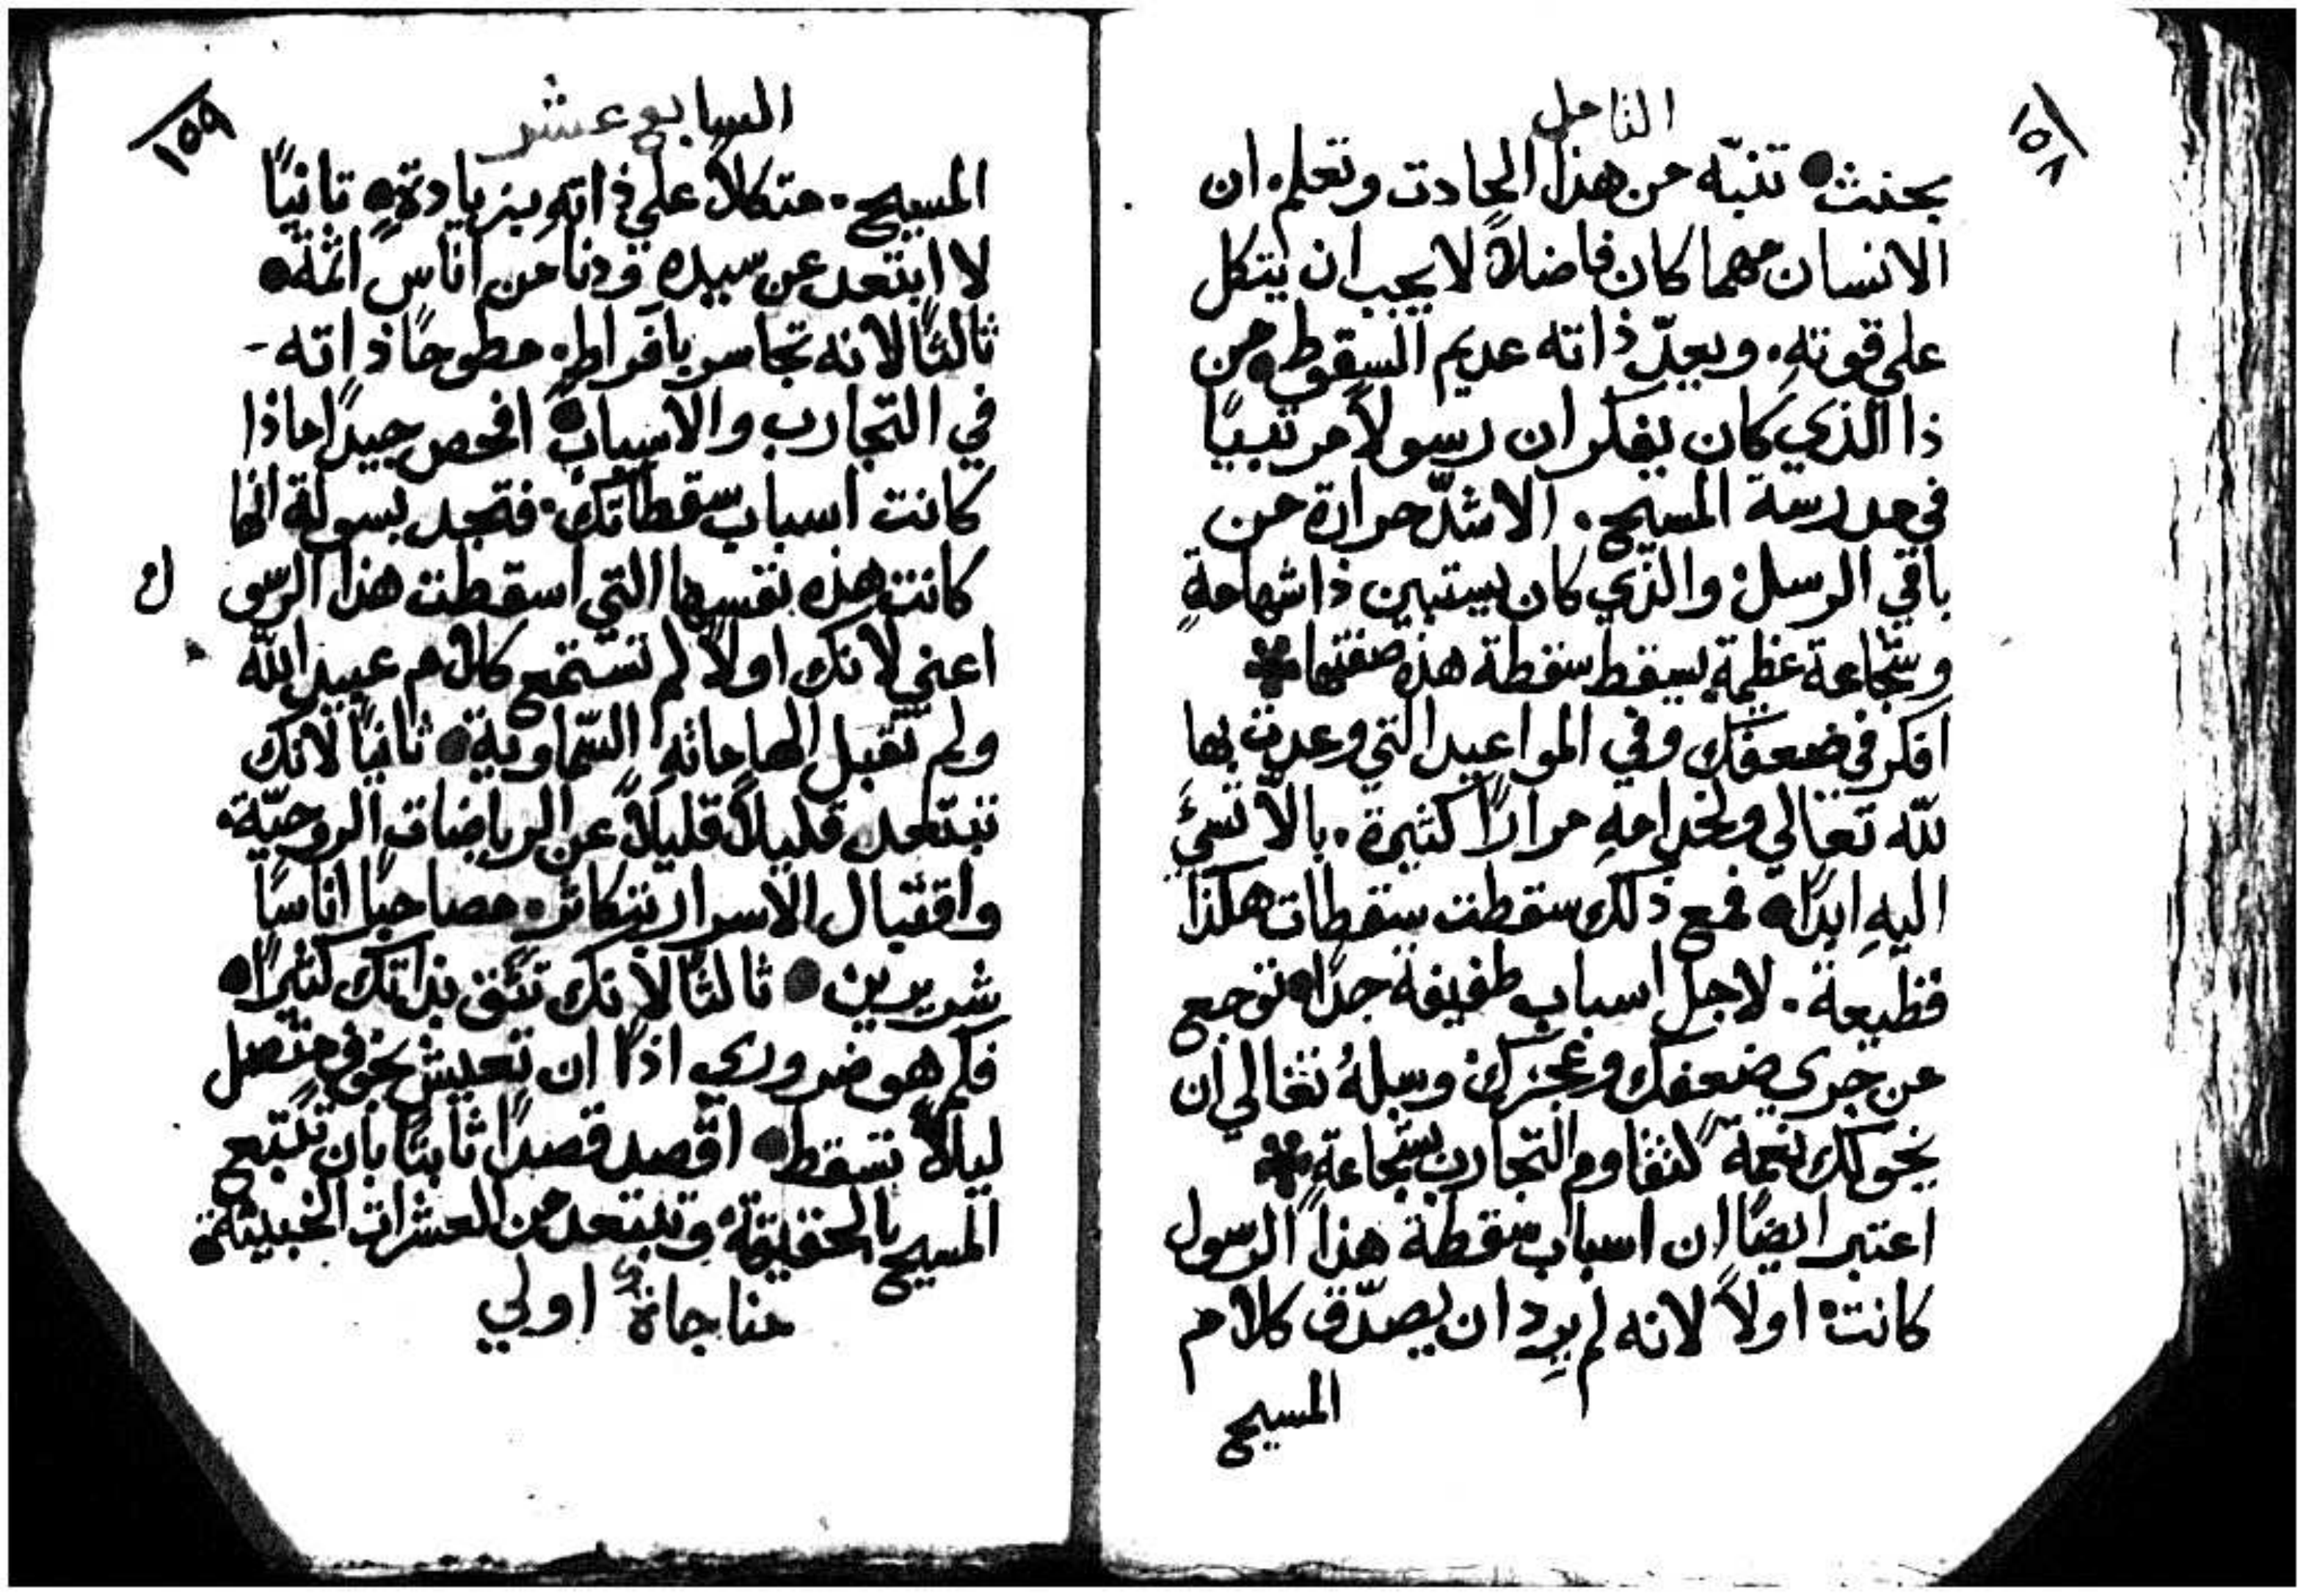 ١٥٨
التامل
بحنث● تنبّه من هذا الحادث وتعلم ان
الانسان مهما كان فاضلاً لا يجب ان يتكل
علي قوته. ويعدّ ذاته عديم السقوط● من
ذا الذي كان يفكر ان رسولاً مرتبيًا
في مدرسة المسيح. الاشدّ حرارة من
باقي الرسل والذي كان يستبين ذا شهامةٍ
وشجاعة عظيمة يسقط سقطة هذه صفتها
افكر في ضعفك وفي المواعيد التي وعدت بها
للّه تعالي ولخدامهِ مرارًا كثيرة. بالاّ تسئ
اليهِ ابدًا● فمع ذلك سقطت سقطات هكذا
فظيعة. لاجل اسباب طفيفة جدًا● توجع
من جري ضعفك وعجزك وسلهُ تعالي ان
يخولك نعمةً لتقاوم التجارب بشجاعةٍ
اعتبر ايضًا ان اسباب سقطة هذا الرسول
كانت اولاً لانه لم يرِد ان يصدّق كلام
المسيح
١٥٩
السابع عشر
المسيح. متكلاً علي ذاتهِ بزيادةٍ● تانيًا
لا ابتعد عن سيده ودنا من اناس اثمة●
ثالثًا لانه تجاسر بافراطٍ مطوحًا ذاته -
في التجارب والاسباب● افحص جيدًا ماذا
كانت اسباب سقطاتك. فتجد بسولة انها
كانت هذه نفسها التي اسقطت هذا الرّسو ل
اعني لانك اولاً لم تستمع كلام عبيد اللّه
ولم تقبل الهاماته السّماوية● ثانيًا لانك
تبتعد قليلاً قليلاً عن الرياضات الروحيّة.
واقتبال الاسرار بتكاثر. مصاحبًا اناسًا
شريرين● ثالثًا لانك تثق بذاتك كثيرًا●
فكم هو ضروري اذًا ان تعيش بخوفٍ متصل
ليلاً تسقط● اقصد قصدًا ثابتًا بان تتبع
المسيح بالحقيقة وتبتعد من العشرات الخبيثة
مناجاةٌ اولي